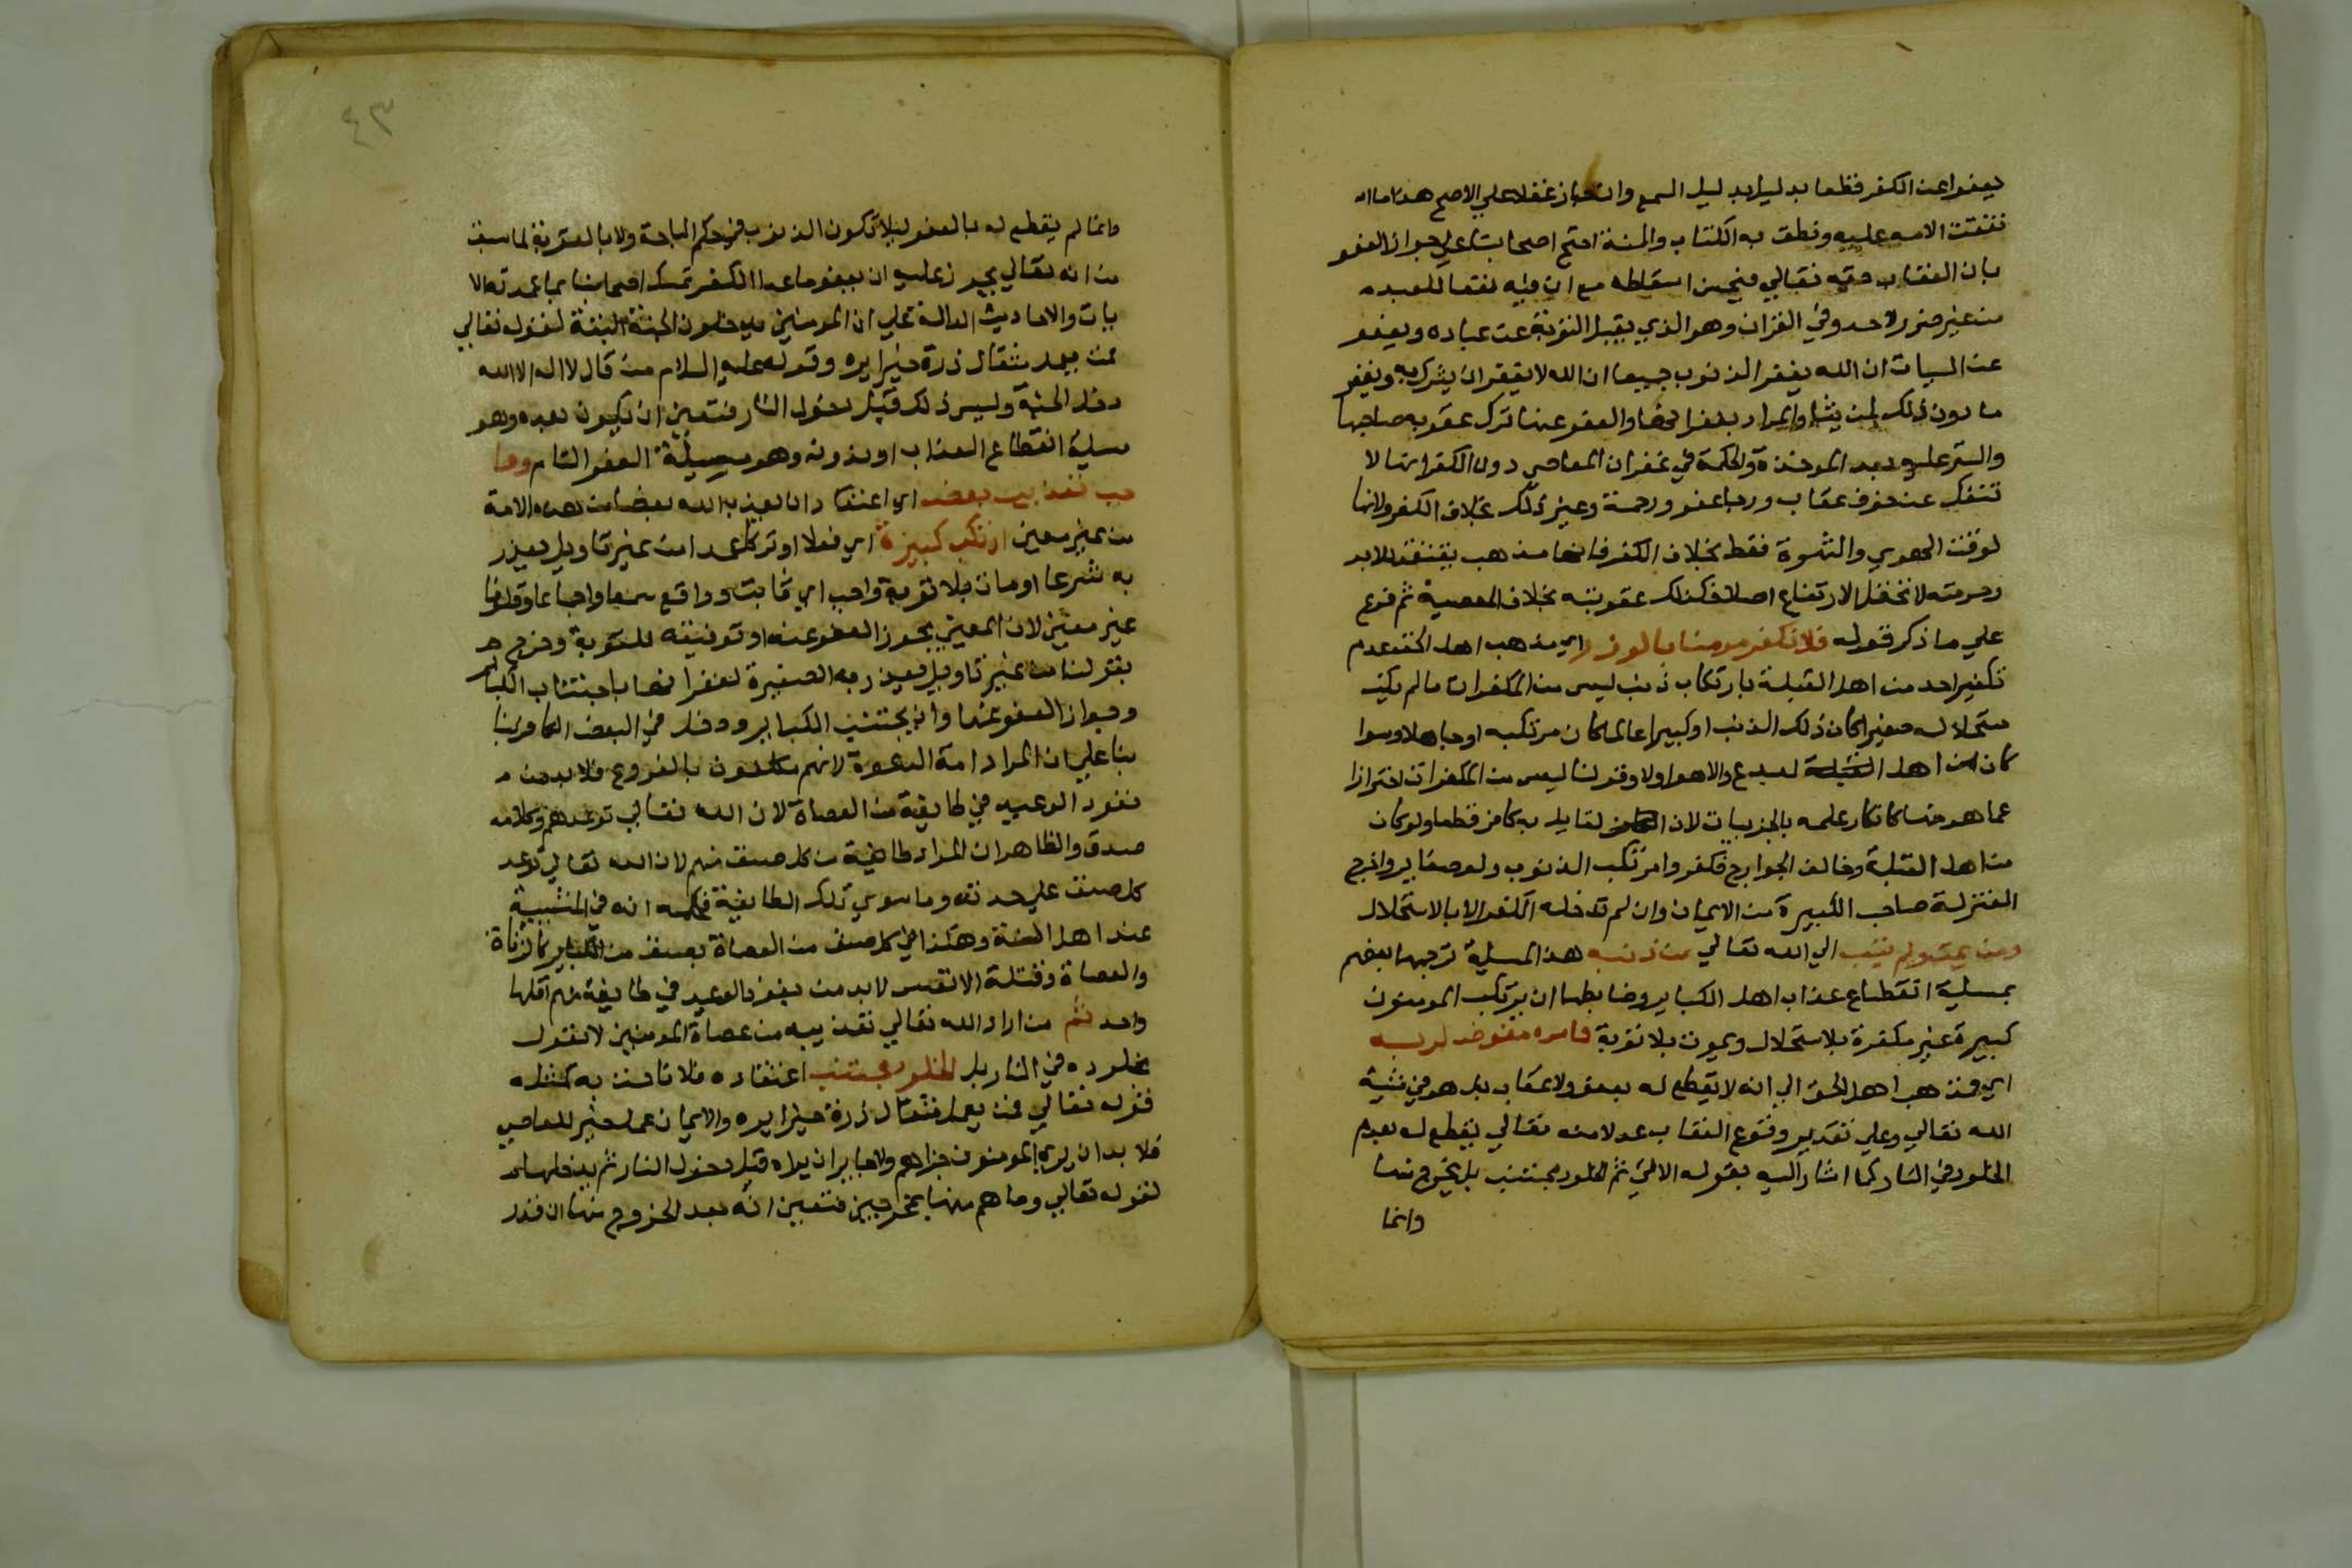 يعفوا عن الكفر قطعا بدليل بدليل السمع وان جاز عقلا علي الاصح هذا ما
تفقت الامه عليه ونطق به الكتاب والسنة احتج اصحابنا علي جواز العفو
بان العقاب حقه تعالي فيحسن اسقاطه مع ان فيه نفعا للعبد
من غير ضرر لاحد وفي القران وهو الذي يقبل التوبة عن عباده ويعفو
عن السيات ان الله يغفر الذنوب جميعا ان الله لا يغفر ان يشرك به ويغفر
ما دون ذلك لمن يشا والمراد بغفرانها والعفو عنها ترك عقوبه صاحبها
والستر عليه بعد الموخذة والحكمة في غفران المعاصي دون الكفر انها لا
تنفك عن خوف عقاب ورجا عفو ورحمة وغير ذلك بخلاف الكفر ولانها
لوقت الهوي والشهوة فقط بخلاف الكفر فانه مذهب يعتقد للابد
وحرمته لا تحتمل الارتفاع اصلا فكذلك عقوبته بخلاف المعصية ثم فرع
علي ما ذكر قوله فلا نكفر مومنا بالوزر اي مذهب اهل الحق عدم
تكفير احد من اهل القبلة بارتكاب ذنب ليس من المكفرات ما لم يكن
مستحلا له صغيرا كان ذلك الذنب او كبيرا عالما كان مرتكبه او جاهلا وسوا
كان من اهل البدع والاهوا اولا وقولنا ليس من المكفرات احترازا
عما هو منها كانكار علمه بالجزييات لان القايل به كافر قطعا ولو كان
من اهل القبلة وخالف الخوارج فكفروا مرتكب الذنوب ولو صغاير واخرج
المعتزلة صاحب الكبيرة من الايمان وان لم تدخله الكفر الا بالاستحلال
ومن يمت ولم يتب الي الله تعالي من ذنبه هذا المسيلة ترجمها بعضهم
بمسيلة انقطاع عذاب اهل الكباير وضابطها ان يرتكب المومن
كبيرة غير مكفرة بلا استحلال ويموت بلا توبة فامره مفوض لربه
اي فمذهب اهل الحق الي انه لا يقطع له بعفو ولا عقاب بل هو في مشية
الله تعالي وعلي تقدير وقوع العقاب عدلا منه تعالي يقطع له بعدم
الخلود في النار كما اشار اليه بقوله الاتي ثم الخلود مجتنب بل يخرج منها
وانما
٤٣
وانما لم يقطع له بالعفو ليلا تكون الذنوب في حكم المباحة ولا بالعقوبة لما سبق
من انه تعالي يجوز عليه ان يعفو ما عدا الكفر تمسك اصحابنا بما عدته الا
يات والاحاديث الدالة علي ان المومنين يدخلون الجنة البتة لقوله تعالي
فمن يعمل مثقال ذرة خيرا يره وقوله عليه السلام من قال لا اله الا الله
دخل الجنة وليس ذلك قبل دخول النار فتعين ان يكون بعده وهو
مسيلة انقطاع العذاب او بدونه وهو مسيلة العفو التام وما
جب تعذيب بعض اي اعتقاد ان يعذب الله بعضا من هذه الامة
من غير معين ارتكب كبيرة اي فعلا او تركا عمدا من غير تاويل يعذر
به شرعا او مات بلا توبة واجب اي ثابت وواقع سمعا واجبا
غير معين لان المعين يجوز العفو عنه او توفيقه للتوبة وخرج
بقولنا من غير تاويل يعذر به الصغيرة لغفرانها باجتناب الكباير
وجواز العفو عنها وان لم يجتنب الكباير ودخل في البعض الكافر بنا
بنا علي ان المراد امة الدعوة لانهم مكلفون بالفروع فلا بد من
نفوذ الوعيد في طايفة من العصاة لان الله تعالي توعدهم وكلامه
صدق والظاهر ان المراد طايفة من كل صنف منهم لان الله تعالي توعد
كل صنف علي حدته وما سوي تلك الطايفة فحكمه انه في المشيية
عند اهل السنة وهكذا في كل صنف من العصاة بصنف من الكباير كالزناة
والعصاة وقتلة الانفس لابد من نفوذ الوعيد في طايفة منهم اقلها
واحد ثم من اراد الله تعالي تعذيبه من عصاة المومنين لا نقول
بخلوده في النار بل الخلود مجتنب اعتقاده فلا
قوله تعالي فمن يعمل مثقال ذرة خيرا يره والايمان عمل خير للعاصي
فلا بد ان يري المومنون جزاهم ولا جايز ان يراه قبل دخول النار ثم يدخلها
لقوله تعالي وما هم منها بمخرجين فتعين انه بعد الخروج منها ان قدر